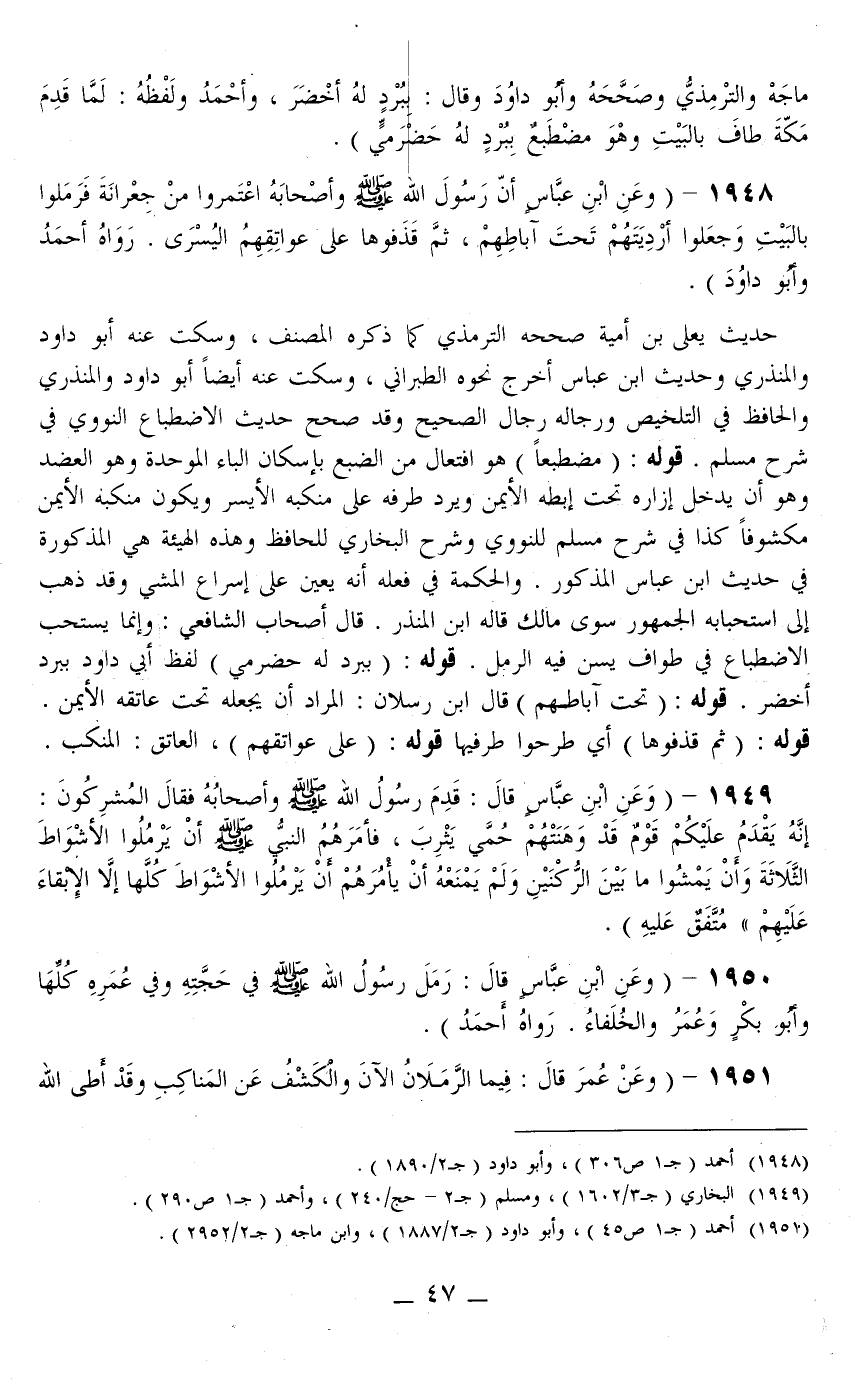 ماجَهْ والترْمِذيُّ وصَحَّحَهُ وأبُو داوُدَ وقال : بِبُرْدٍ لهُ أخْضَرَ ، وأحْمَدُ ولَفْظُهُ : لَمَّا قَدِمَ
مَكّةَ طافَ بالبَيْتِ وهْوَ مضْطَبعٌ بِبُرْدٍ لهُ حَضْرَميٍّ ) .
١٩٤٨ – ( وعَنِ ابْنِ عبَّاسٍ أنّ رَسُولَ الله ﷺ وأصْحابَهُ اعْتَمروا منْ جِعْرانَةَ فَرَملوا
بالبَيْتِ وَجعَلوا أرْدِيَتَهُمْ تَحتَ آباطِهِمْ ، ثمَّ قَذَفوها على عواتِقِهِمُ اليُسْرَى . رَوَاهُ أحمَدُ
وأبُو داوُدَ ) .
حديث يعلى بن أمية صححه الترمذي كما ذكره المصنف ، وسكت عنه أبو داود
والمنذري وحديث ابن عباس أخرج نحوه الطبراني ، وسكت عنه أيضاً أبو داود والمنذري
والحافظ في التلخيص ورجاله رجال الصحيح وقد صحح حديث الاضطباع النووي في
شرح مسلم . قوله : ( مضطبعاً ) هو افتعال من الضبع بإسكان الباء الموحدة وهو العضد
وهو أن يدخل إزاره تحت إبطه الأيمن ويرد طرفه على منكبه الأيسر ويكون منكبه الأيمن
مكشوفاً كذا في شرح مسلم للنووي وشرح البخاري للحافظ وهذه الهيئة هي المذكورة
في حديث ابن عباس المذكور . والحكمة في فعله أنه يعين على إسراع المشي وقد ذهب
إلى استحبابه الجمهور سوى مالك قاله ابن المنذر . قال أصحاب الشافعي : وإنما يستحب
الاضطباع في طواف يسن فيه الرمل . قوله : ( ببرد له حضرمي ) لفظ أبي داود ببرد
أخضر . قوله : ( تحت آباطهم ) قال ابن رسلان : المراد أن يجعله تحت عاتقه الأيمن .
قوله : ( ثم قذفوها ) أي طرحوا طرفيها قوله : ( على عواتقهم ) ، العاتق : المنكب .
١٩٤٩ – ( وَعَنِ ابْنِ عبَّاسٍ قالَ : قَدِمَ رسُولُ الله ﷺ وأصحابُهُ فقالَ المُشرِكُونَ :
إنَّهُ يَقْدَمُ علَيْكُمْ قَوْمٌ قدْ وَهَنَتْهُمْ حُمَّي يَثْرِبَ ، فأمَرَهُمُ النبيُّ ﷺ أنْ يَرْمُلُوا الأشْوَاطَ
الثَّلاثَةَ وَأَنْ يَمْشُوا ما بَيْنَ الرُّكْنَيْنِ وَلَمْ يَمْنَعْهُ أنْ يأْمُرَهُمْ أَنْ يَرْمُلُوا الأشْوَاطَ كُلَّها إلَّا الإبْقاءَ
عَلَيْهِمْ » مُتَّفَقٌ عَليهِ ) .
١٩٥٠ – ( وعَنِ ابْنِ عبَّاسٍ قالَ : رَمَلَ رسُولُ الله ﷺ في حَجَّتِهِ وفي عُمَرِهِ كُلِّهَا
وأبُو بكْرٍ وَعُمَرُ والخُلَفاءُ . رَواهُ أَحمَدُ ) .
١٩٥١ – ( وعَنْ عُمرَ قالَ : فِيما الرَّمَلانُ الآنَ والْكَشْفُ عَن المَناكِبِ وقَدْ أَطى الله
(١٩٤٨) أحمد ( جـ١ ص٣٠٦ ) ، وأبو داود ( جـ١٨٩٠/٢ ) .
(١٩٤٩) البخاري ( جـ١٦٠٢/٣ ) ، ومسلم ( جـ٢ – حج/٢٤٠ ) ، وأحمد ( جـ١ ص٢٩٠ ) .
(١٩٥١) أحمد ( جـ١ ص٤٥ ) ، وأبو داود ( جـ١٨٨٧/٢ ) ، وابن ماجه ( جـ٢٩٥٢/٢ ) .
— ٤٧ —